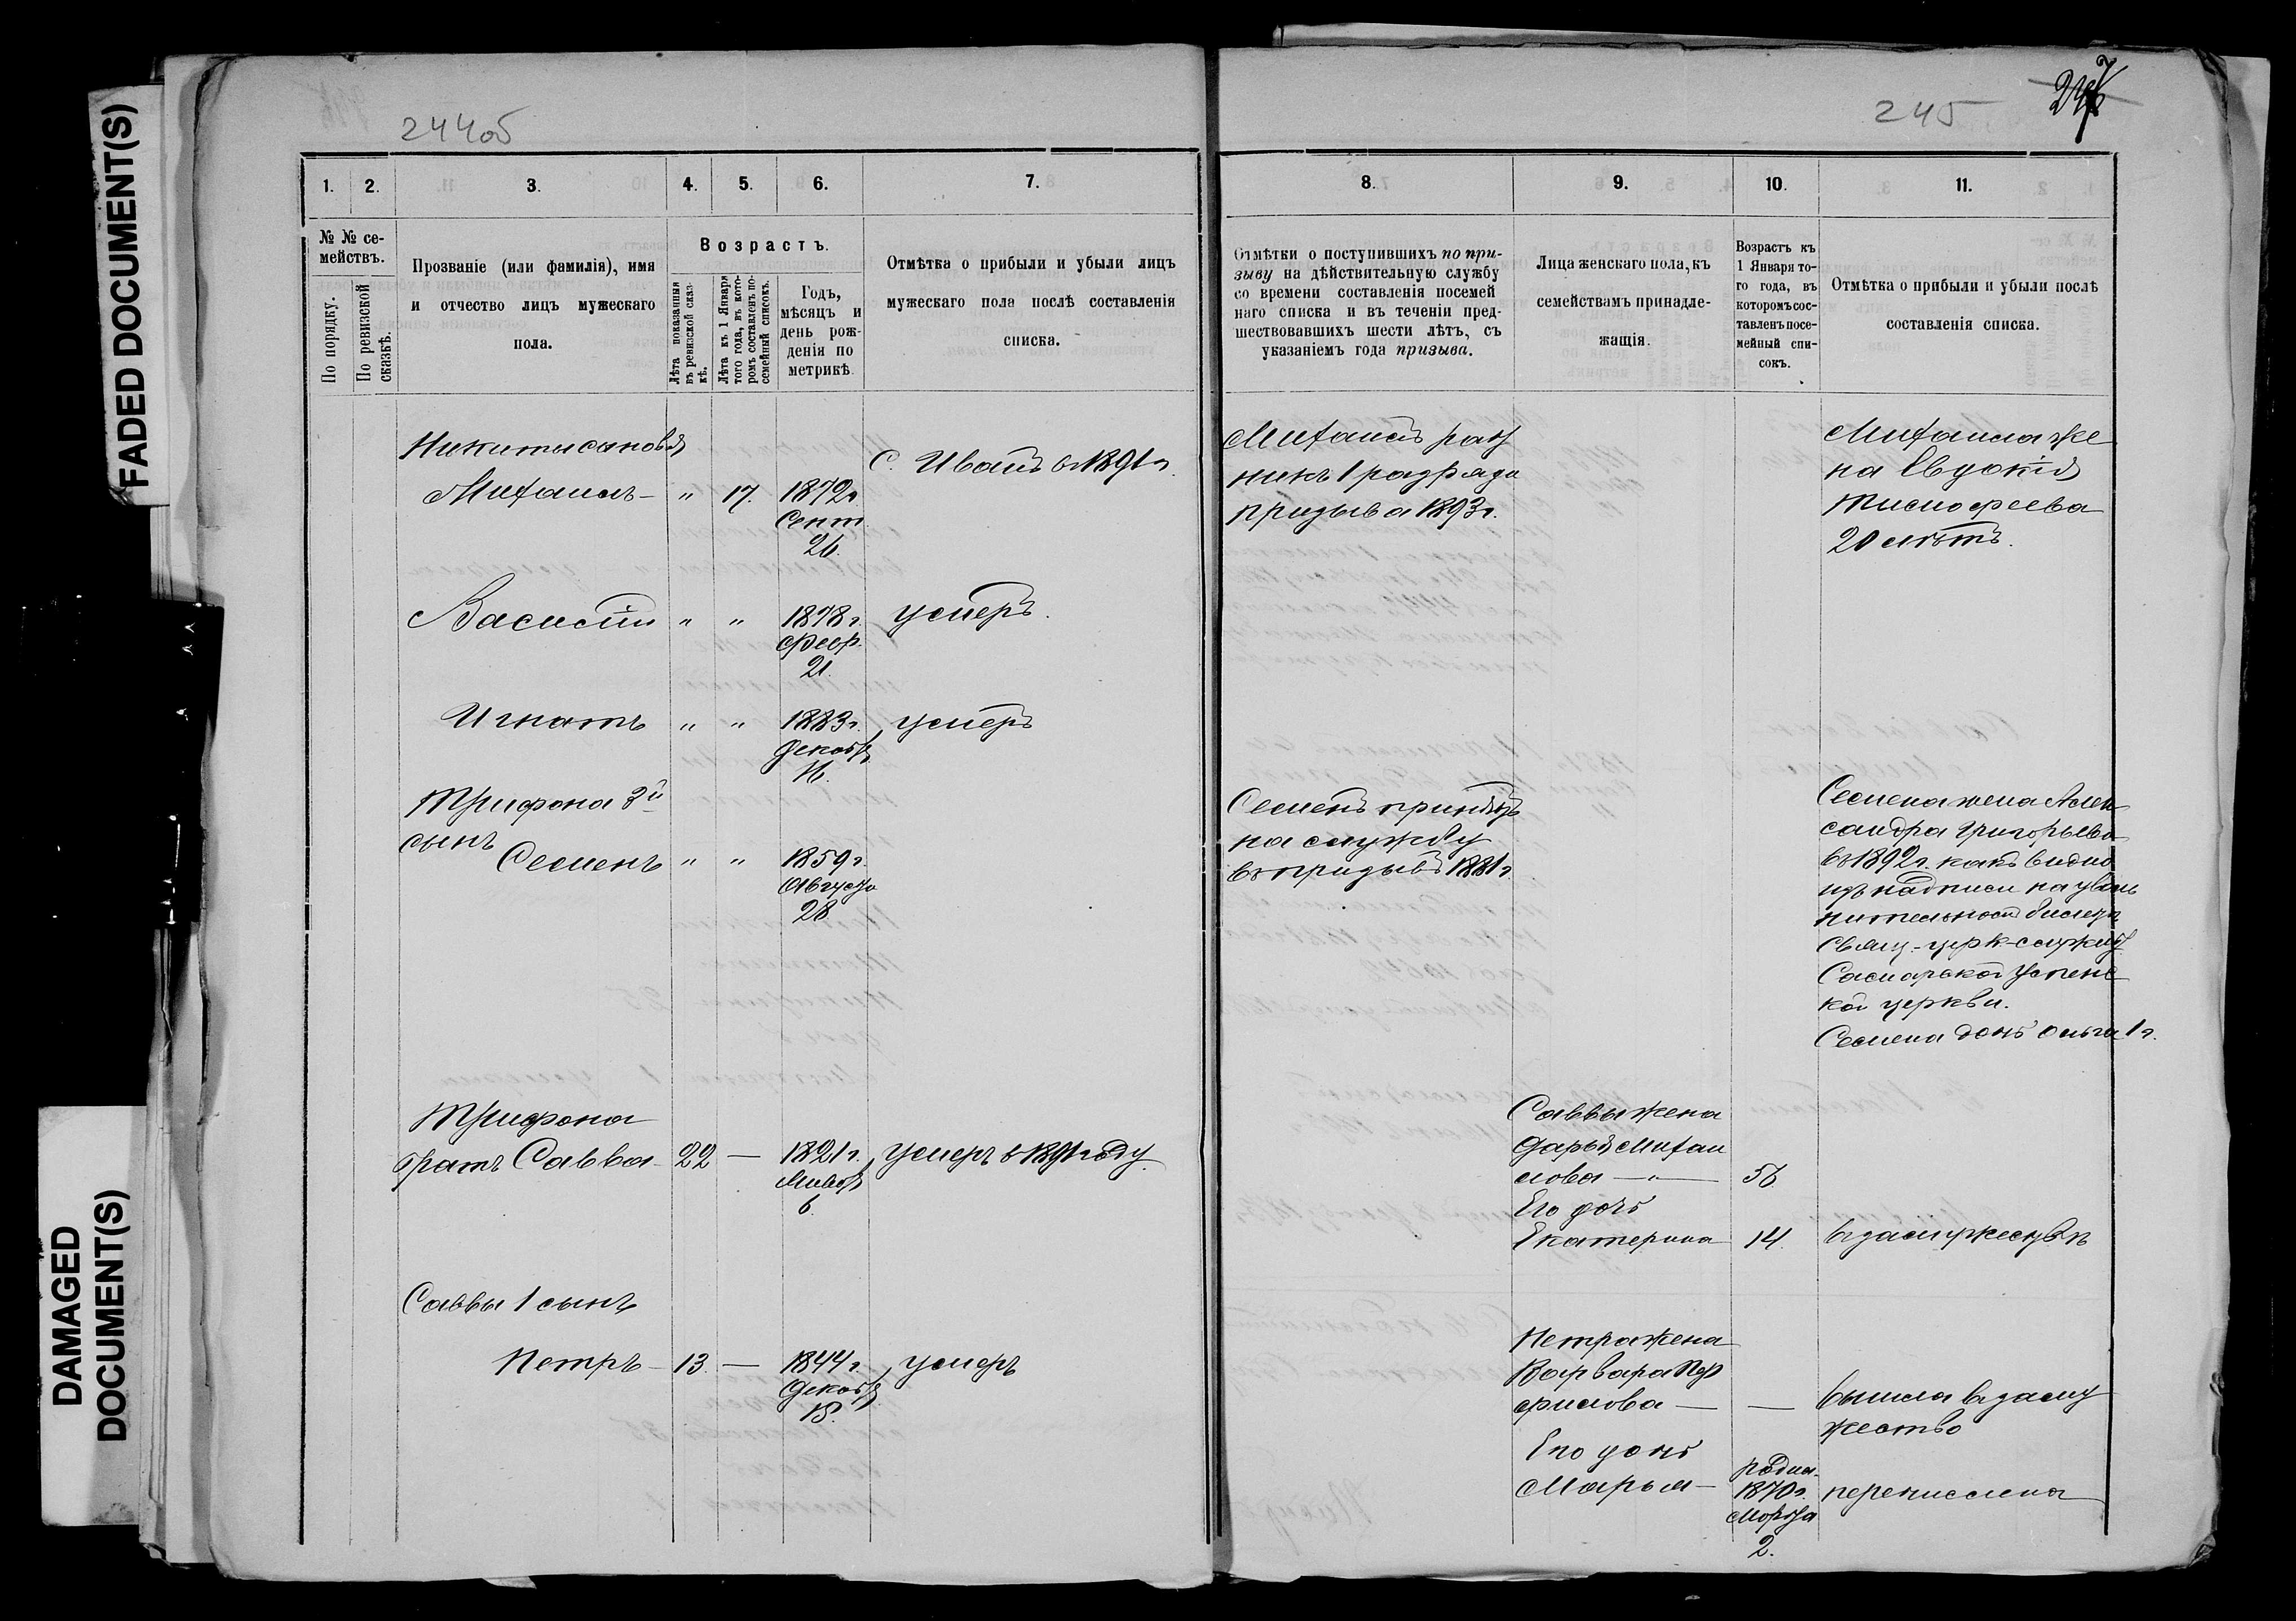 FADED DOCUMENT(S)
DAMAGED
DOCUMENT(S)
244об
1.
2.
3.
4.
5.
6.
7.
№ № се-
мействъ.
По порядку.
По ревизской
сказкѣ.
Прозваніе (или фамилія), имя
и отчество лицъ мужескаго
пола.
Возрастъ.
Лѣта показанныя
въ ревизской сказ-
кѣ.
Лѣта къ 1 Января
того года, въ кото-
ромъ составленъ по-
семейный списокъ.
Годъ,
мѣсяцъ и
день рож-
денія по
метрикѣ.
Отмѣтка о прибыли и убыли лицъ
мужескаго пола послѣ составленія
списка.
Никиты сыновья
Михаилъ — " 17. 1872г.
Сент.
26.
С. Иванъ в 1891 г.
Василій " " 1878 г. умеръ.
Февр.
21.
Игнатъ " " 1883 г. умеръ
Декабря
Трифона 3й
сынъ
Семенъ " " 1859 г.
Августа
28.
Трифона
братъ Савва — 22 — 1821 г. умеръ в 1891 году.
Января
6.
Саввы 1 сынъ
Петръ — 13. — 1844 г. умеръ
Декабря
245
8.
9.
10.
11.
Отмѣтки о поступившихъ по при-
зыву на дѣйствительную службу
со времени составленія посемей
наго списка и въ теченіи пред-
шествовавшихъ шести лѣтъ, съ
указаніемъ года призыва.
Лица женскаго пола, къ
семействамъ принадле-
жащія.
Возрастъ къ
1 Января то-
го года, въ
которомъ сос-
тавленъ посе-
мейный спи-
сокъ.
Отмѣтка о прибыли и убыли послѣ
составленія списка.
Михаилъ рат
никъ 1 разряда
призыва 1893 г.
Михаила же
на Евдокія
Тимофеева
20 лѣтъ.
Семенъ принятъ
на службу
въ призывъ 1881 г.
Семена жена Алек
сандра Григорьева
въ 1892 г. какъ видно
изъ надписи на уволь
нительномъ билетѣ
Свящ.-церк-служит.
Самарской Успенс
кой церкви.
Семена дочь Ольга 1 г.
Саввы жена
Дарья Михаи
лова — " — 56
Его дочь
Екатерина 14. в замужествѣ
Петра жена
Варвара
филова — — вышла в заму
жество
Его дочь
Марья — родил. 1870 г. Марта 2. перечислена